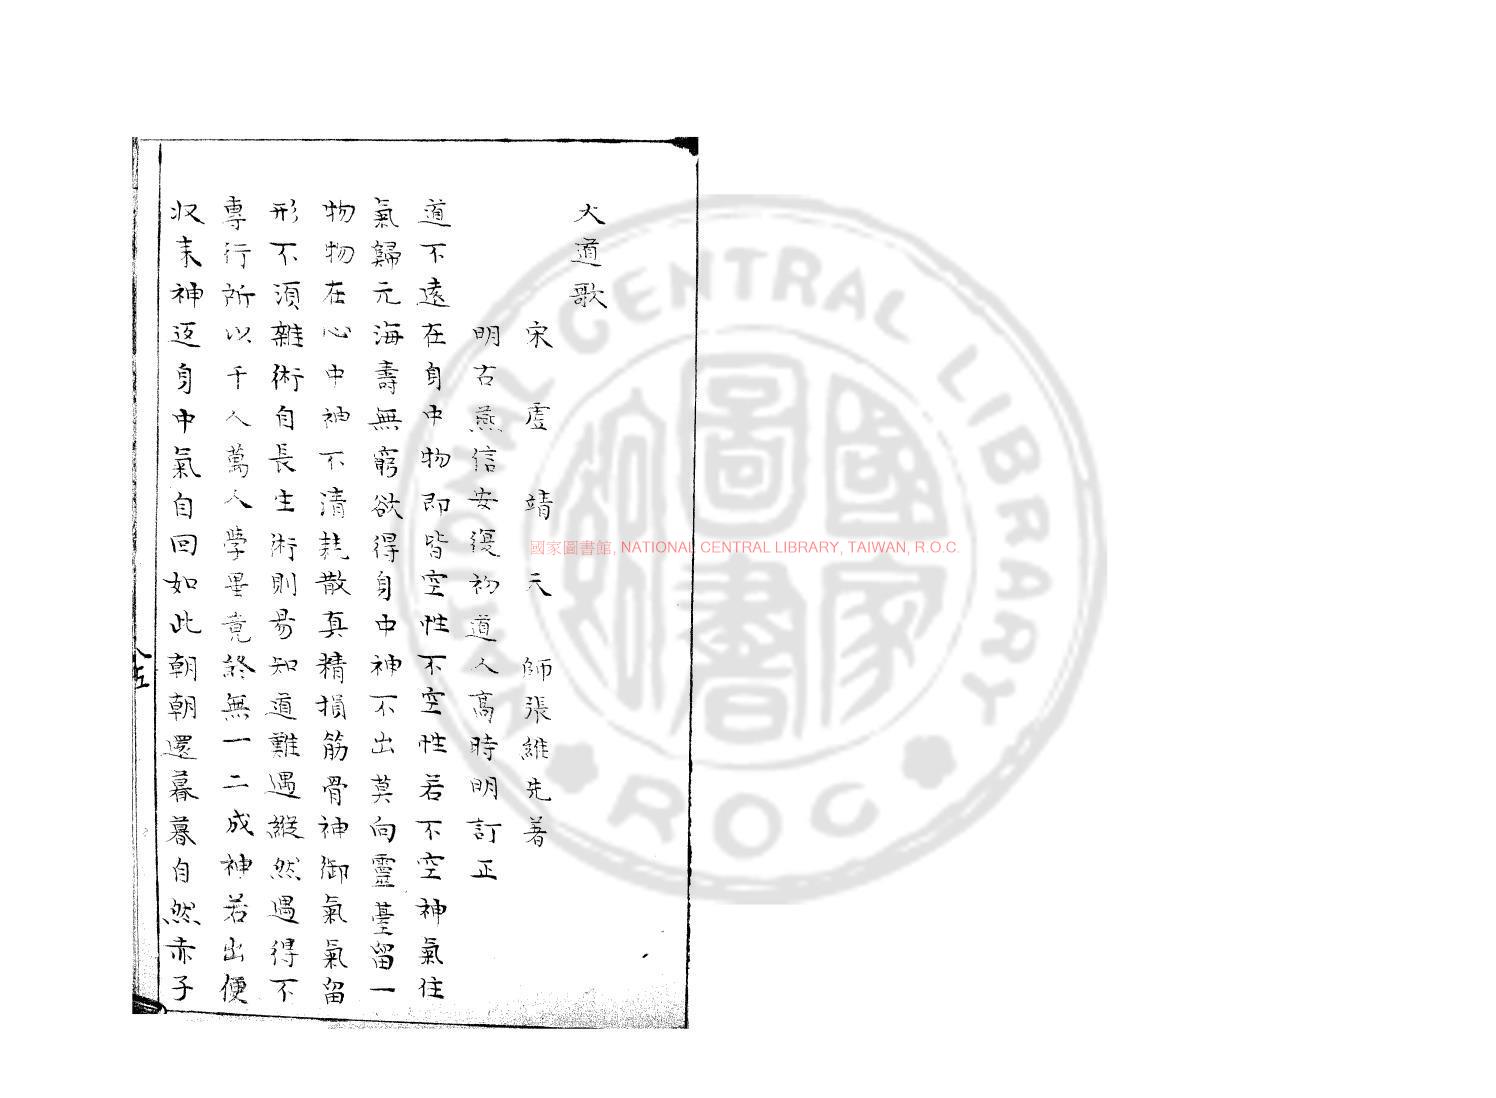 大道歌
宋虛靖天師張維先著
明古燕信安復初道人高時明訂正
道不遠在身中物即皆空性不空性若不空神氣住
氣歸元海壽無窮欲得身中神不出莫向靈臺留一
物物在心中神不清耗散真精損筋骨神御氣氣留
形不須雜術自長生術則易知道難遇縱然遇得不
專行所以千人萬人學畢竟終無一二成神若出便
収来神返身中氣自回如此朝朝還暮暮自然赤子
國家圖書館, NATIONAL CENTRAL LIBRARY, TAIWAN, R.O.C.
NATIONAL CENTRAL LIBRARY
ROC
國家
圖書